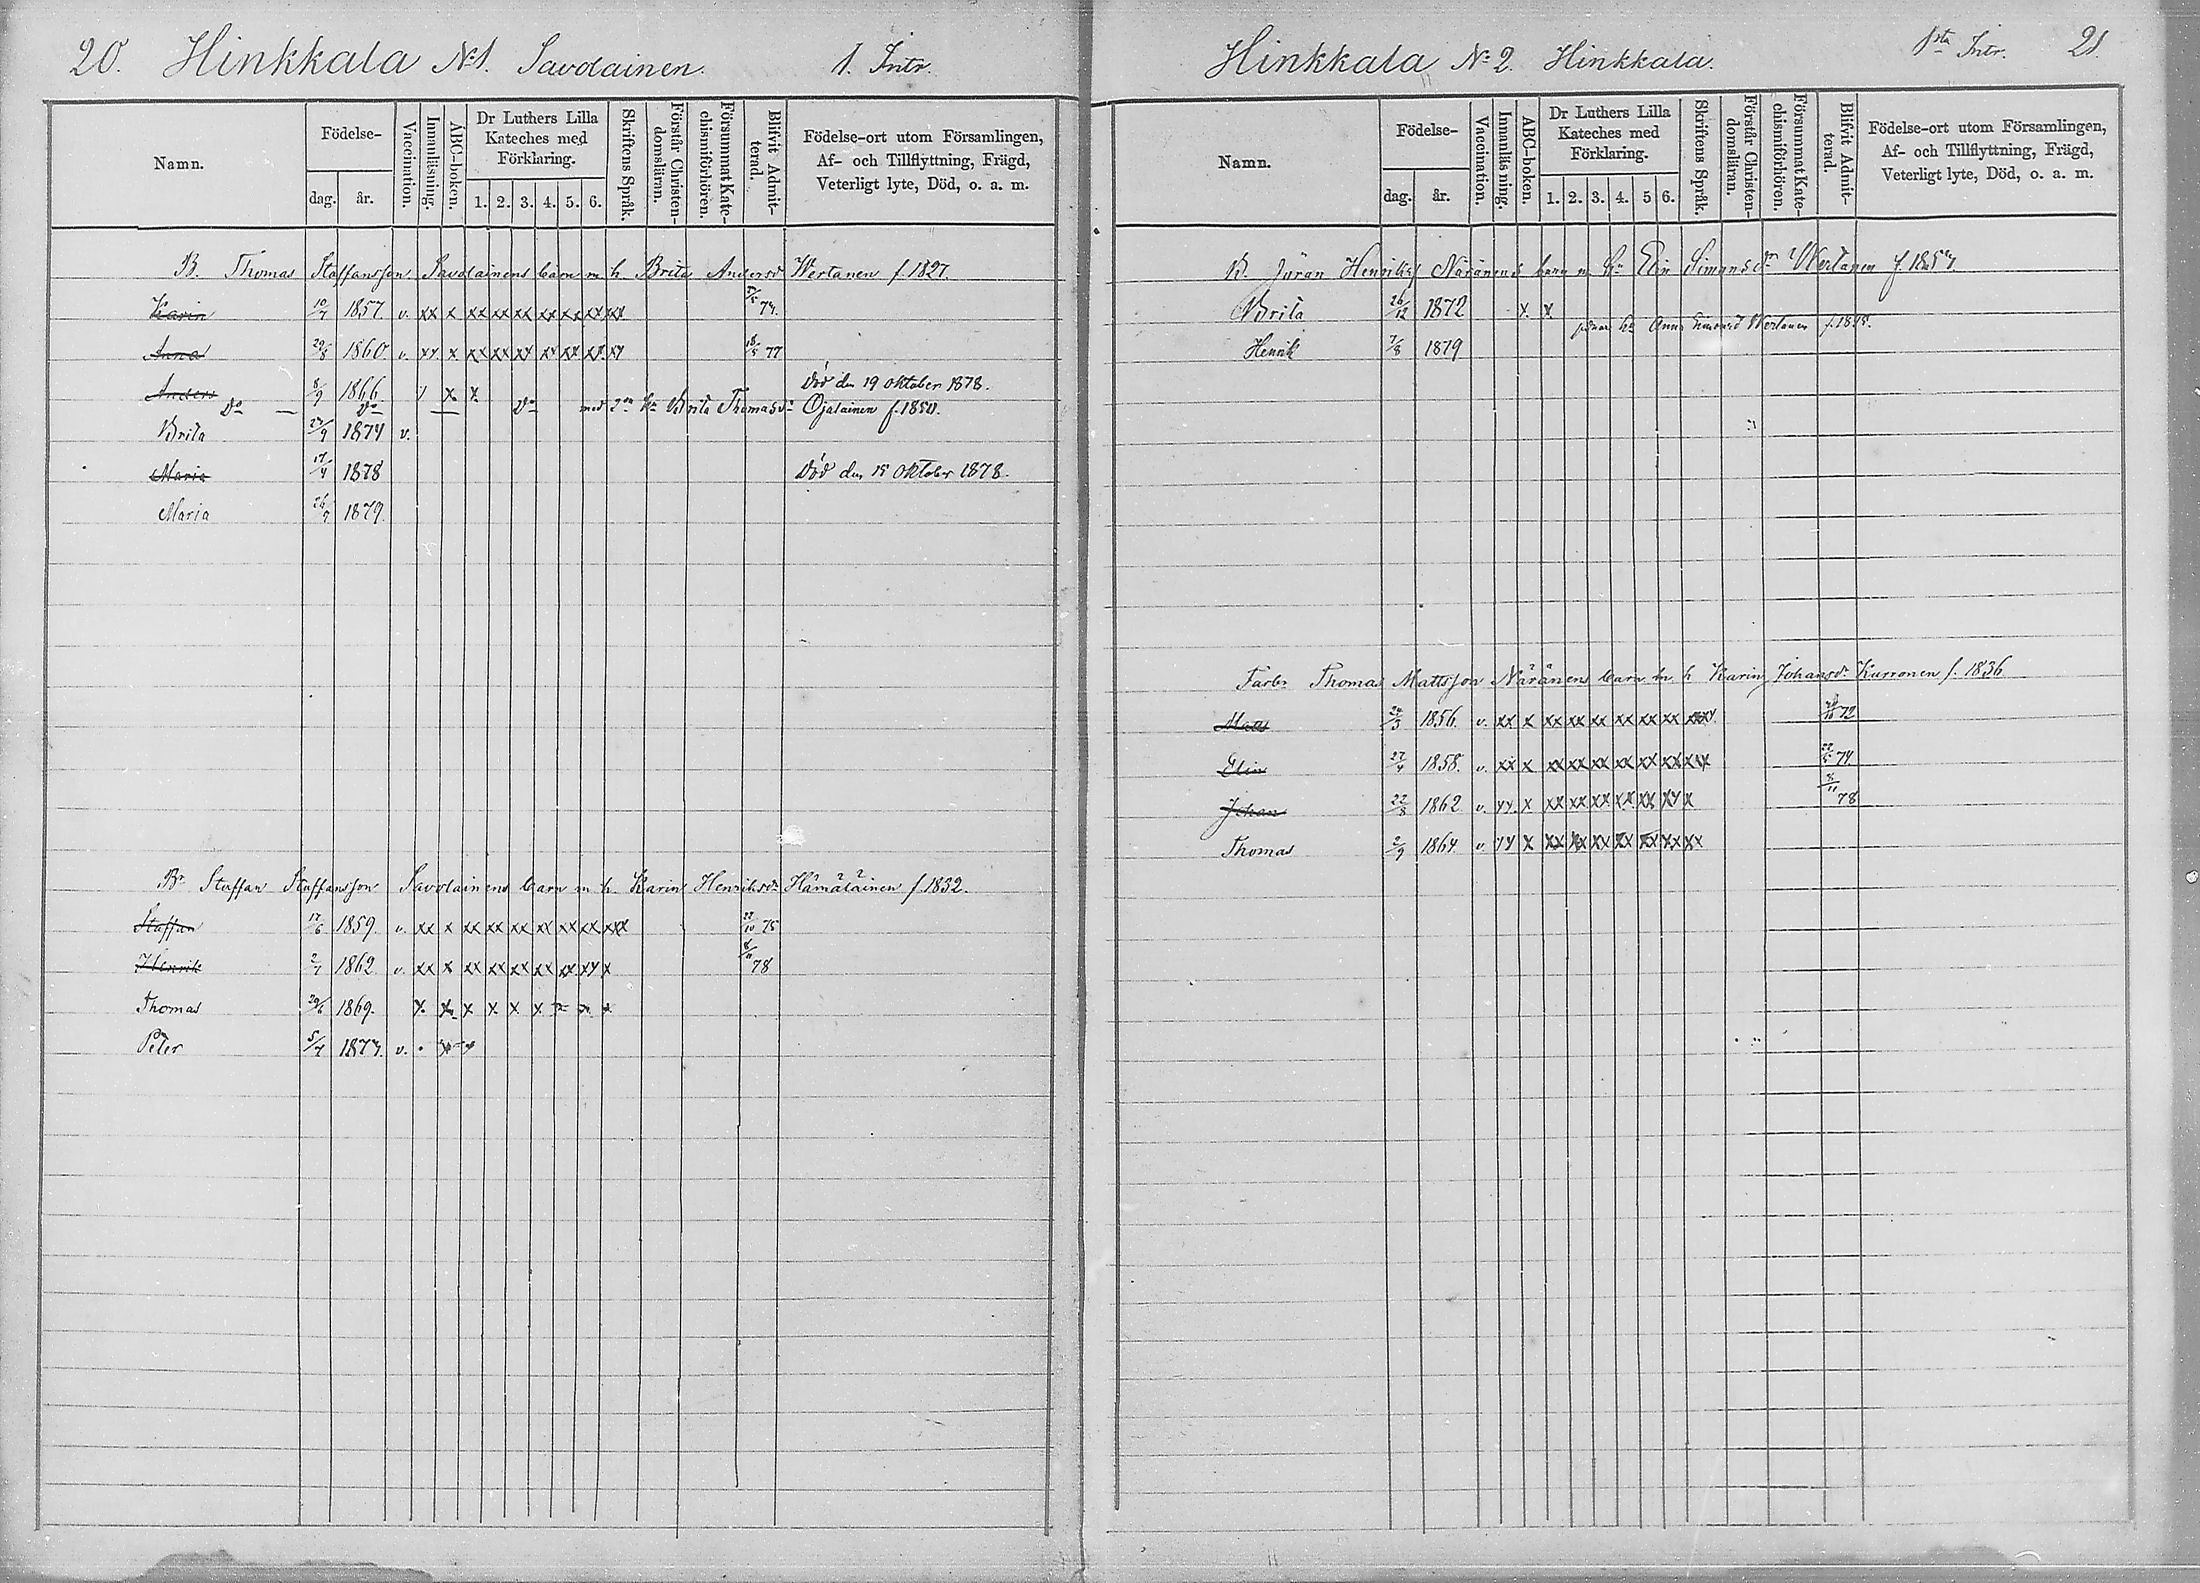 20. Hinkkala No 1. Savolainen. 1. Intr.
Namn. Födelse- dag. år. Vaccination. Innanläsning. ABC-boken. Dr Luthers Lilla Kateches med Förklaring. 1. 2. 3. 4. 5. 6. Skriftens Språk. Förstår Christendomsläran. Försummat Katechismiförhören. Blifvit Admitterad. Födelse-ort utom Församlingen, Af- och Tillflyttning, Frägd, Veterligt lyte, Död, o. a. m.
B. Thomas Staffansson Savolainens barn m h Brita Andersd Wertanen f. 1827.
Karin 10/7 1857. v. xx x xx xx xx xx xx xx xxx 74.
Anna 29/8 1860. v. xx x xx xx xx xx xx xx xx 18/5 77
Anders 8/9 1866. x x Död den 19 oktober 1878.
Do — Do — Do med 2on ha Brita Thomasdr Ojalainen f. 1850.
Brita 27/9 1874 v.
Maria 17/4 1878 Död den 15 oktober 1878.
Maria 26/9 1879.
Br Staffan Staffansson Savolainens barn m h. Karin Henriksdr Hämäläinen f. 1832.
Staffan 17/6 1859. v. xx x xx xx xx xx xx xx xxx 22/10 75
Henrik 2/7 1862. v. xx x xx xx xx xx xx xx x 78
Thomas 29/6 1869. x x x x x
Peter 5/7 1877. v.
Hinkkala No 2. Hinkkala. 1sta Intr. 21.
Namn. Födelse- dag. år. Vaccination. Innanläsning. ABC-boken. Dr Luthers Lilla Kateches med Förklaring. 1. 2. 3. 4. 5 6. Skriftens Språk. Förstår Christendomsläran. Försummat Katechismiförhören. Blifvit Admitterad. Födelse-ort utom Församlingen, Af- och Tillflyttning, Frägd, Veterligt lyte, Död, o. a. m.
B. Jöran Henriks Näränens barn m. ha Elin Simonsdr Wertanen
Brita 26/12 1872 x x
ha Anna Wertanen
Henrik 7/8 1879
Farbr Thomas Mattsson Näränens barn m h Karin Johansdr Kurronen f. 1836
Matts 24/3 1856. v. xx x xx xx xx xx xx xx 72
Elin 27/4 1858. v. xx x xx xx xx xx xx xx 22/5 74
Johan 22/8 1862 v. xx x xx xx xx xx xx xx x 78
Thomas 2/9 1864 v. xx x xx xx xx xx xx xx xx